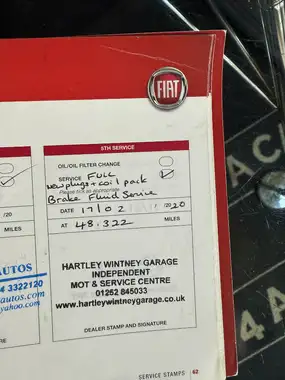 FIAT
5TH SERVICE
OIL/OIL FILTER CHANGE
SERVICE FULL
Please tick as appropriate
New plugs + coil pack
Brake Fluid Service
DATE 17/02 /2020
AT 48.322 MILES
HARTLEY WINTNEY GARAGE
INDEPENDENT
MOT & SERVICE CENTRE
01252 845033
www.hartleywintneygarage.co.uk
DEALER STAMP AND SIGNATURE
SERVICE STAMPS 62
/20
MILES
AUTOS
4 3322120
autos.com
yahoo.com
ACH
4A